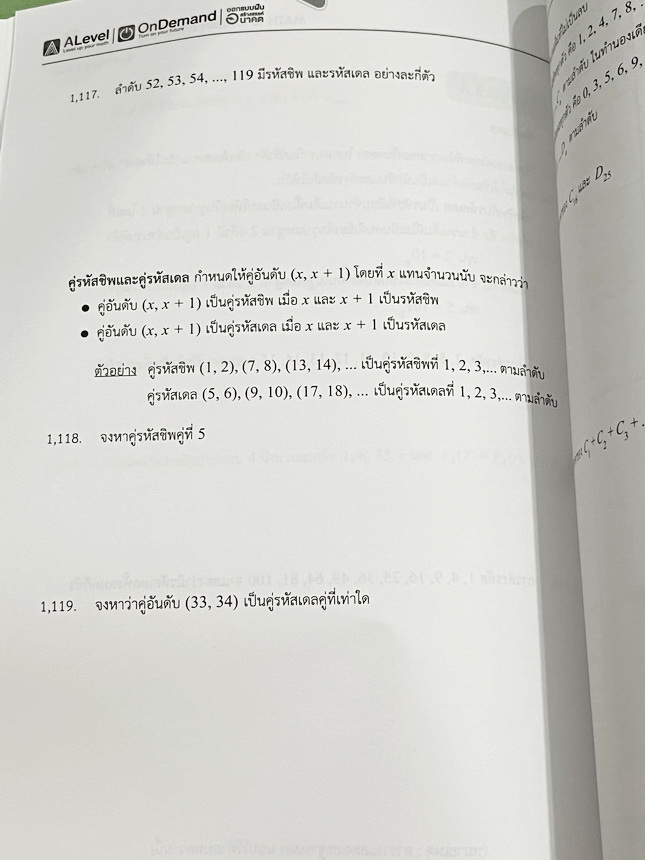 ALevel
Level up your math
OnDemand
Turn on your future
ออกแบบฝัน
สร้างสรรค์
อนาคต
1,117. ลำดับ 52, 53, 54, ..., 119 มีรหัสชิพ และรหัสเดล อย่างละกี่ตัว
คู่รหัสชิพและคู่รหัสเดล กำหนดให้คู่อันดับ (x, x + 1) โดยที่ x แทนจำนวนนับ จะกล่าวว่า
● คู่อันดับ (x, x + 1) เป็นคู่รหัสชิพ เมื่อ x และ x + 1 เป็นรหัสชิพ
● คู่อันดับ (x, x + 1) เป็นคู่รหัสเดล เมื่อ x และ x + 1 เป็นรหัสเดล
ตัวอย่าง คู่รหัสชิพ (1, 2), (7, 8), (13, 14), ... เป็นคู่รหัสชิพที่ 1, 2, 3,... ตามลำดับ
คู่รหัสเดล (5, 6), (9, 10), (17, 18), ... เป็นคู่รหัสเดลที่ 1, 2, 3,... ตามลำดับ
1,118. จงหาคู่รหัสชิพคู่ที่ 5
1,119. จงหาว่าคู่อันดับ (33, 34) เป็นคู่รหัสเดลคู่ที่เท่าใด
คือ 1, 2, 4, 7, 8,
ตามลำดับ ในทำนองเดีย
คือ 0, 3, 5, 6, 9,
ตามลำดับ
C₁₆ และ D₂₅
C₁+C₂+C₃+